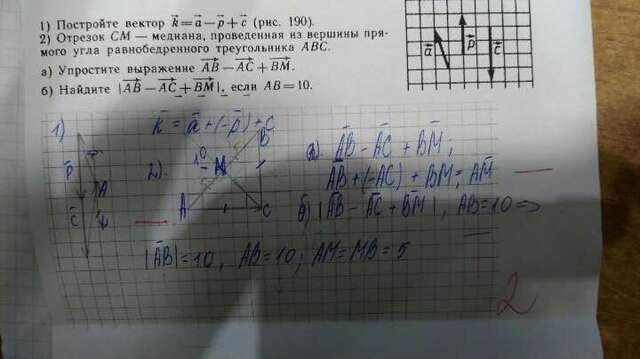 1) Постройте вектор k⃗=a⃗−p⃗+c⃗ (рис. 190).
2) Отрезок CM — медиана, проведенная из вершины пря-
мого угла равнобедренного треугольника ABC.
а) Упростите выражение AB⃗−AC⃗+BM⃗.
б) Найдите |AB⃗−AC⃗+BM⃗|, если AB=10.
a⃗ p⃗ c⃗
1) k̄ = ā+(-p̄)+c
p̄ c̄ A
2). 10 M B A C
а). AB̄ - AC̄ + BM̄;
AB̄+(-AC̄) + BM̄= AM̄
б) |AB̄ - AC̄ + BM̄|, AB=10 =>
|AB̄|=10, AB=10; AM=MB= 5
2